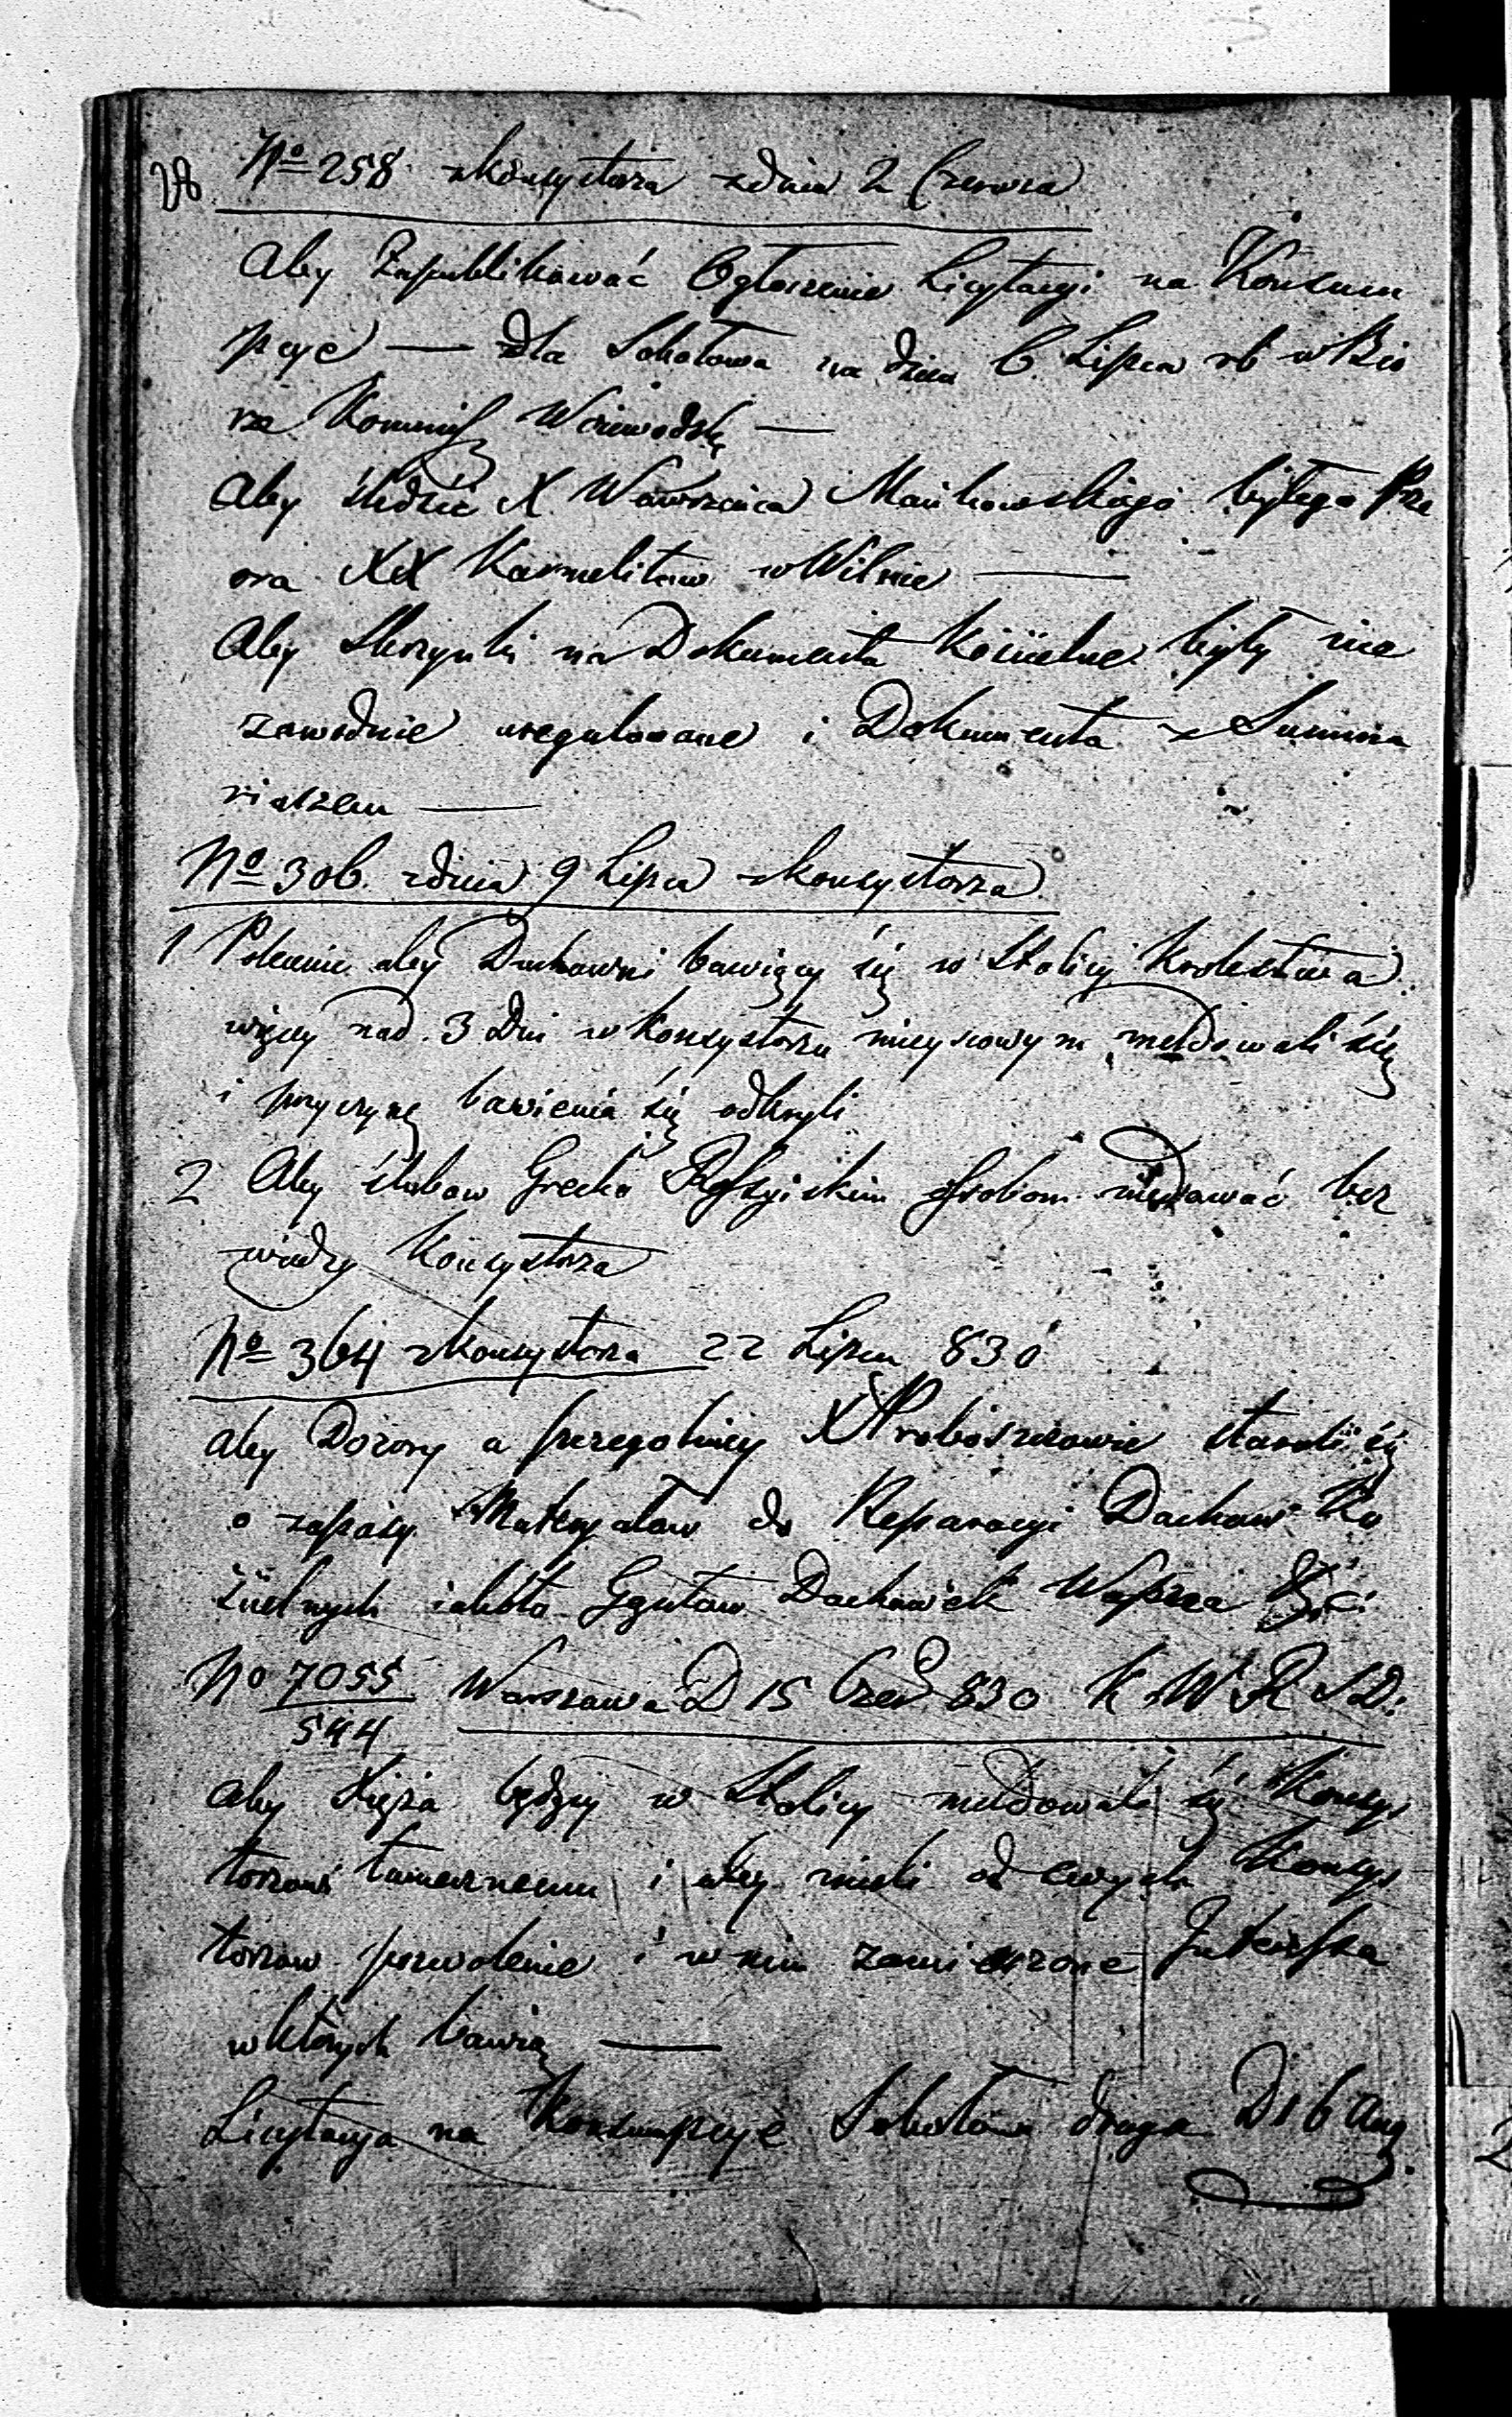 No 258 z Konsystorza z dnia 2 Czerwca
Aby Zapublikować Ogłoszenie Licytacyi na Konsum
pcye — dla Sokołowa na dzień 6 Lipca rb w Biu
rze Kommiss Woiewodzkę —
Aby śledzić X Wawrzeńca Mańkowskiego byłego Prze
ora XX Karmelitow w Wilnie —
Aby Skrzynki na Dokumenta Kościelne były nie
zawodnie uregulowane i Dokumenta z Summa
riuszem —
No 306. z dnia 9 Lipca z Konsystorza
1 Polecenie aby Duchowni bawiący się w Stolicy Krolestwa
więcey nad 3 Dni w Konsystorzu mieyscowym meldowali się
i przyczynę bawienia się odkryli
2 Aby ślubow Grecko Rossyiskim Osobom niedawać bez
wiedzy Konsystorza
No 364 z Konsystorza 22 Lipca 830
aby Dozory a szczegolniey XX Proboszczowie starali się
o zapasy Materyałow do Reparacyi Dachow Ko
ścielnych iakoto Gątow Dachowek Wapna
No 7055/544 Warszawa D 15 Czer 830 K W R S D:
aby Xięża będący w Stolicy meldowali się Konsys
torzowi tamecznemu i aby mieli od swych Konsys
torzow pozwolenie i w nim zamieszczone Interessa
w których bawią —
Licytacya na Konsumpcye Sokołowa druga D 16 Aug